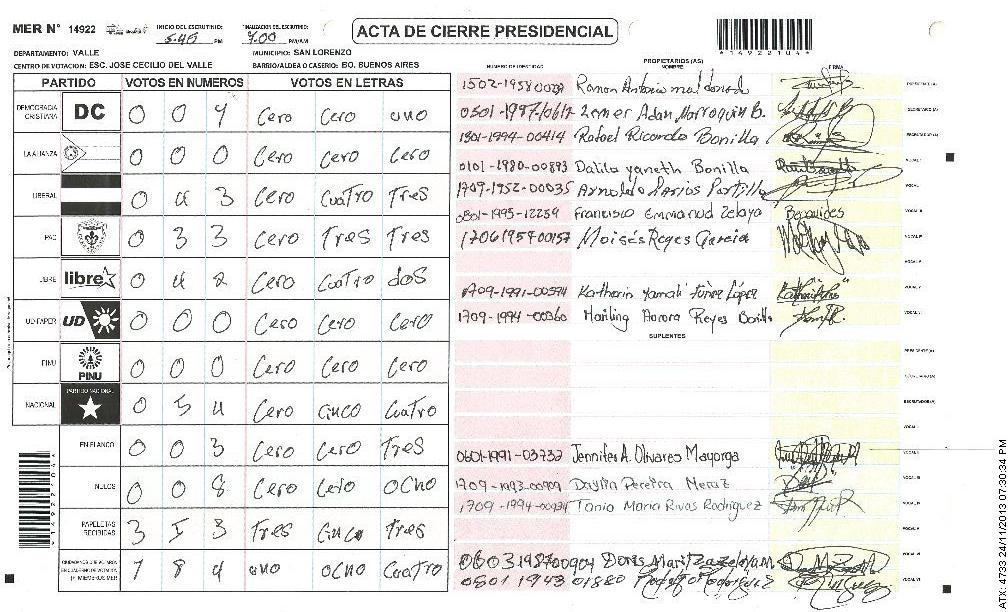 MER N° 14922
INICIO DEL ESCRUTINIO: 5:45 PM
FINALIZACION DEL ESCRUTINIO: 7:00 PM/AM
ACTA DE CIERRE PRESIDENCIAL
*14922104*
DEPARTAMENTO: VALLE
MUNICIPIO: SAN LORENZO
CENTRO DE VOTACION: ESC. JOSE CECILIO DEL VALLE
BARRIO/ALDEA O CASERIO: BO. BUENOS AIRES
PARTIDO VOTOS EN NUMEROS VOTOS EN LETRAS
DEMOCRACIA CRISTIANA DC 0 0 Cero Cero uno
LA ALIANZA 0 0 0 Cero Cero Cero
LIBERAL 0 4 3 Cero Cuatro Tres
PAC 0 3 3 Cero Tres Tres
LIBRE libre 0 4 2 Cero Cuatro dos
UD-FAPER UD 0 0 0 Cero Cero Cero
PINU PINU 0 0 0 Cero Cero Cero
NACIONAL PARTIDO NACIONAL 0 5 4 Cero Cinco Cuatro
EN BLANCO 0 0 3 Cero Cero Tres
NULOS 0 0 8 Cero Cero Ocho
PAPELETAS RECIBIDAS 3 5 3 Tres Cinco Tres
CIUDADANOS QUE VOTARON EN CUADERNO DE VOTACION Y MIEMBROS MER 1 8 4 uno ocho Cuatro
PROPIETARIOS (AS)
NUMERO DE IDENTIDAD NOMBRE FIRMA
Ramon Antonio maldonado PRESIDENTE(A)
Adan Marroquin B. SECRETARIO (A)
1301-1994-00414 Rafael Ricardo Bonilla ESCRUTADOR(A)
0101-1980-00893 Dalila yaneth Bonilla VOCAL I
1709-1952-00035 Arnoldo Portillo VOCAL
0801-1995-12259 Francisco Emmanuel Zelaya VOCAL III
Moisés Reyes Garcia VOCAL IV
VOCAL V
1709-1991-00594 Katherin Yamali Funez López VOCAL
1709-1994-00360 Aurora Reyes Bonilla VOCAL
SUPLENTES
PRESIDENTE(A)
SECRETARIO(A)
ESCRUTADOR(A)
VOCAL I
0601-1991-03732 Jennifer A. Olivares Mayorga VOCAL II
1709-1993-00909 Pereira VOCAL III
1709-1994-00934 Tania Maria Rivas Rodriguez VOCAL IV
VOCAL V
Doris Maritza Zelaya M. VOCAL VI
0801 1943 01880 Rodriguez VOCAL VII
*14922104*
ATX 4733 24/11/2013 07:30:34 PM